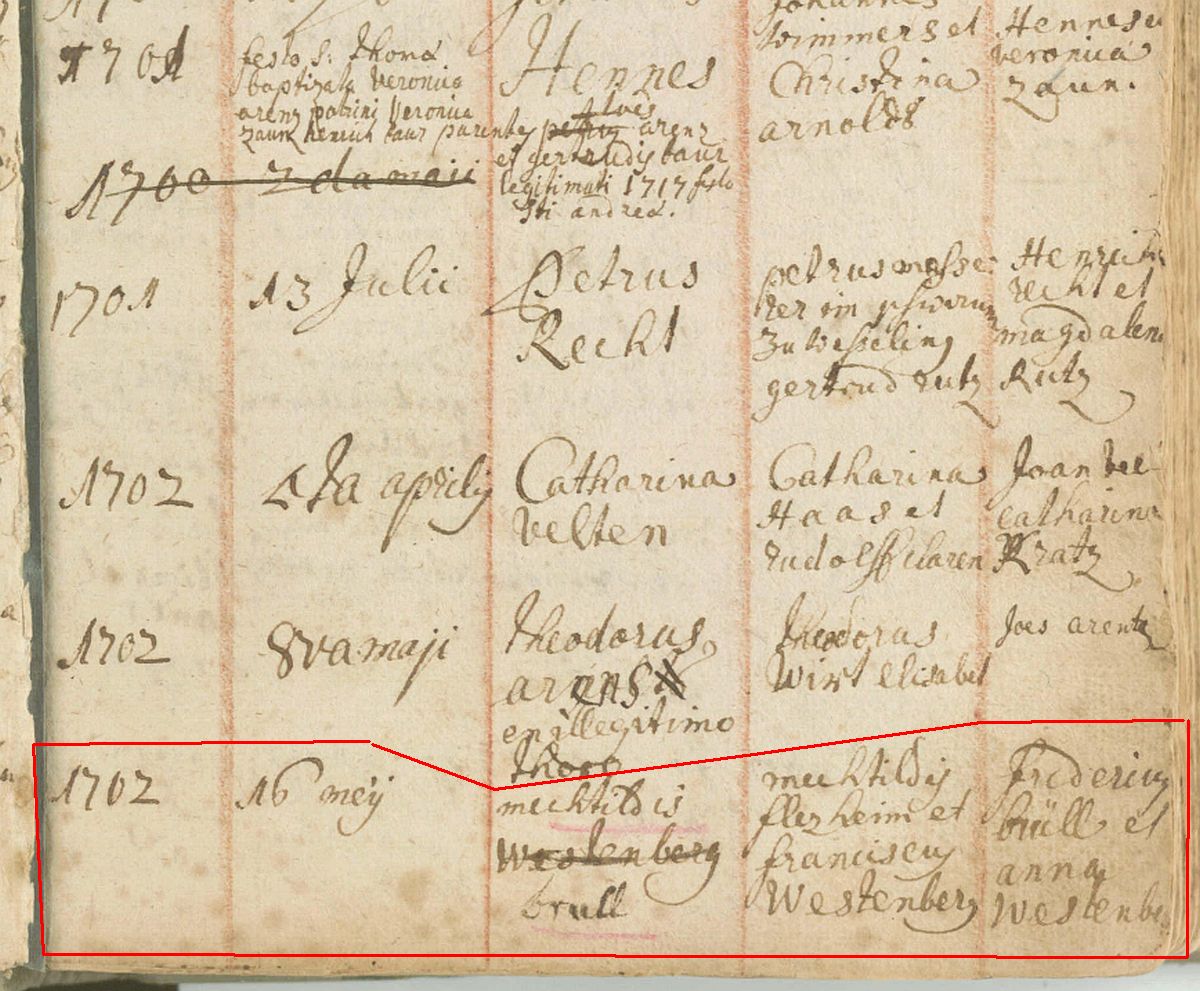 Johannes
wimmers et
Christina
arnolds
Hennes
veronica
zaun.
1701
festo s: thomæ
baptizata veronica
arenz patrini veronica
zaun henrich baur parentes petrus arenz
et gertrudis baur
legitimati 1717 festo
Sti andreæ.
Hennes
1700 2da maji
1701 13 Julii
Petrus
Recht
petrus
zu wesseling
gertrud rutz
Henrich
recht et
magdalen
Rutz
1702 4ta aprilis
Catharina
velten
Catharina
Haas et
rudolff claren
Joan vel
catharina
Kratz
1702 8va maji
theodorus
arens
ex illegitimo
thoro
theodorus
Wirt elisabet
Joes arentz
1702 16 meij
mechtildis
Westenberg
brull
mechtildis
flerzheim et
franciscus
Westenberg
fridericus
brüll et
anna
Westenbe